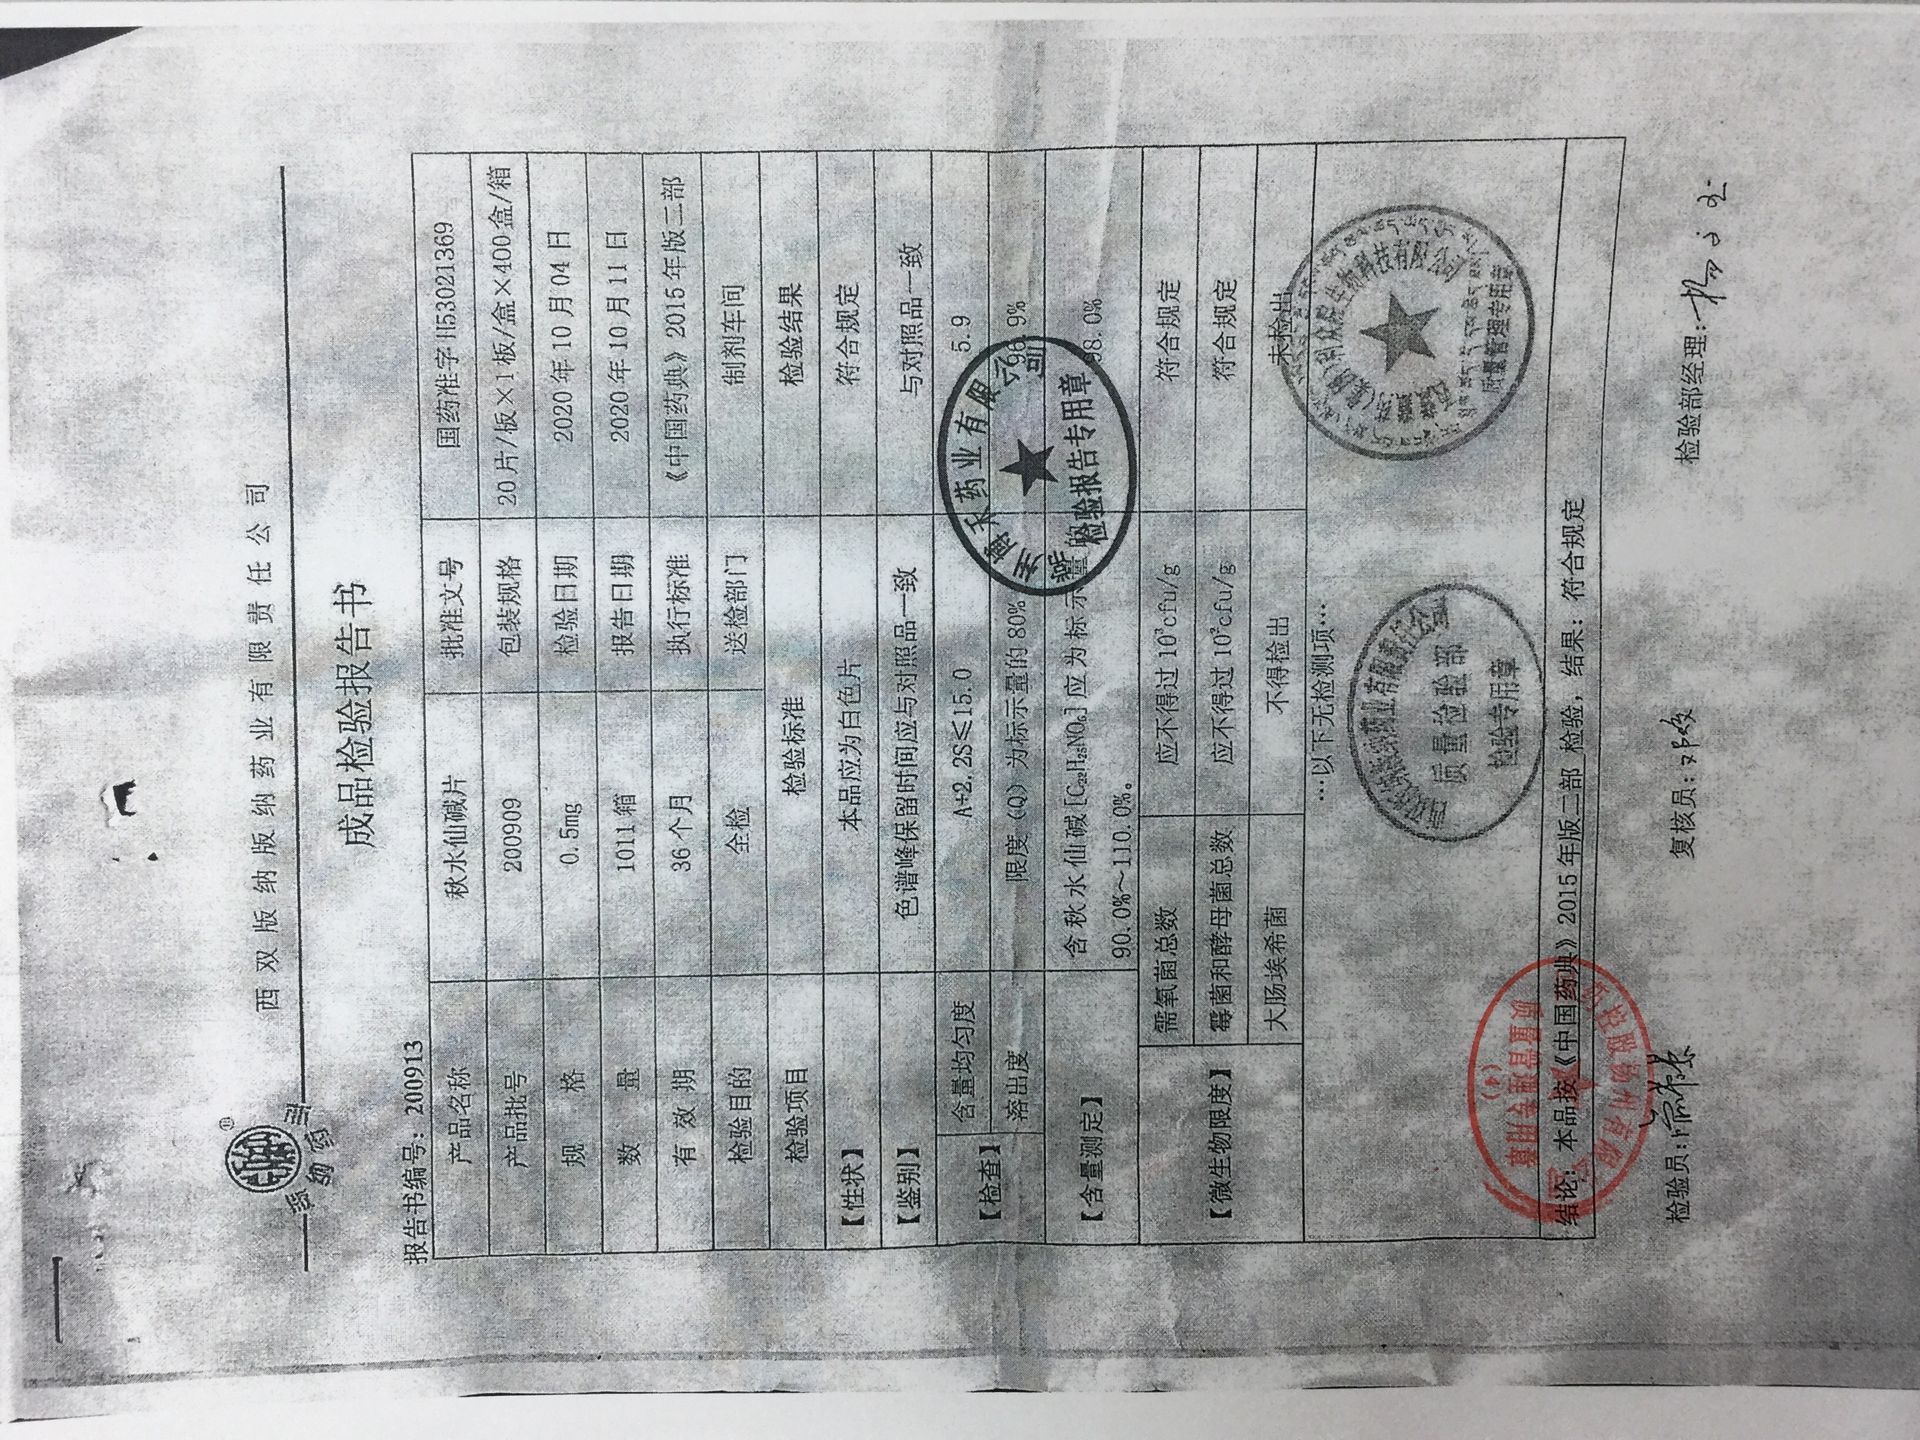 版纳药业
®
西双版纳版纳药业有限责任公司
成品检验报告书
报告书编号：200913
产品名称 秋水仙碱片 批准文号 国药准字H53021369
产品批号 200909 包装规格 20片/版×1板/盒×400盒/箱
规 格 0.5mg 检验日期 2020年10月04日
数 量 1011箱 报告日期 2020年10月11日
有 效 期 36个月 执行标准 《中国药典》2015年版二部
检验目的 全检 送检部门 制剂车间
检验项目 检验标准 检验结果
【性状】 本品应为白色片 符合规定
【鉴别】 色谱峰保留时间应与对照品一致 与对照品一致
【检查】 含量均匀度 A+2.2S≤15.0 5.9
溶出度 限度（Q）为标示量的80% 9%
【含量测定】 含秋水仙碱[C₂₂H₂₅NO₆]应为标示量的 98.0%
90.0%～110.0%。
【微生物限度】 需氧菌总数 应不得过10³cfu/g 符合规定
霉菌和酵母菌总数 应不得过10²cfu/g 符合规定
大肠埃希菌 不得检出 未检出
…以下无检测项…
药业有限公司
检验报告专用章
质量检验部
检验专用章
生物科技有限公司
质量管理专用章
质量管理专用章
结论：本品按《中国药典》2015年版二部 检验，结果：符合规定
检验员： 复核员： 检验部经理：